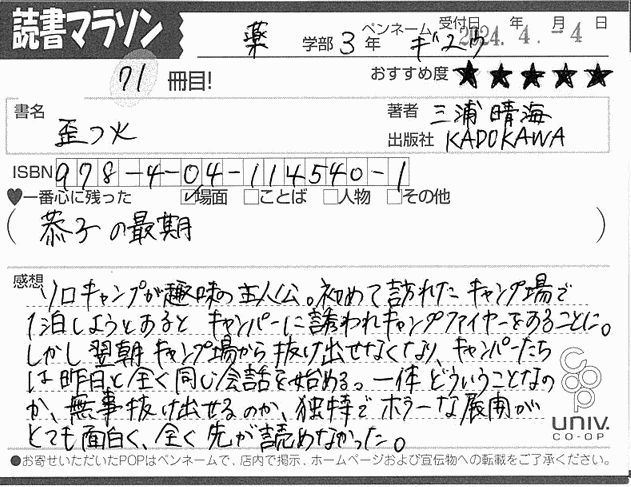 読書マラソン
薬 学部 3 年 ペンネーム ギユウ 受付日 年 月 日
2024. 4. -4
71 冊目! おすすめ度 ★★★★★
書名 歪つ火
著者 三浦晴海
出版社 KADOKAWA
ISBN 978-4-04-114540-1
♥一番心に残った ☑場面 □ことば □人物 □その他
( 恭子の最期 )
感想
ソロキャンプが趣味の主人公。初めて訪れたキャンプ場で
1泊しようとあると キャンパーに誘われキャンプファイヤーをあることに。
しかし翌朝キャンプ場から抜け出せなくなり、キャンパーたち
は昨日と全く同じ会話を始める。一体どういうことなの
か、無事抜け出せるのか、独特でホラーな展開が
とても面白く、全く先が読めなかった。
coop
UNIV.
CO-OP
●お寄せいただいたPOPはペンネームで、店内で掲示、ホームページおよび宣伝物への転載をご了承ください。